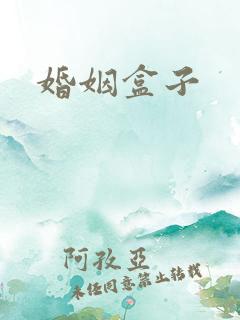 婚姻盒子
阿孜亞
未经同意禁止转载